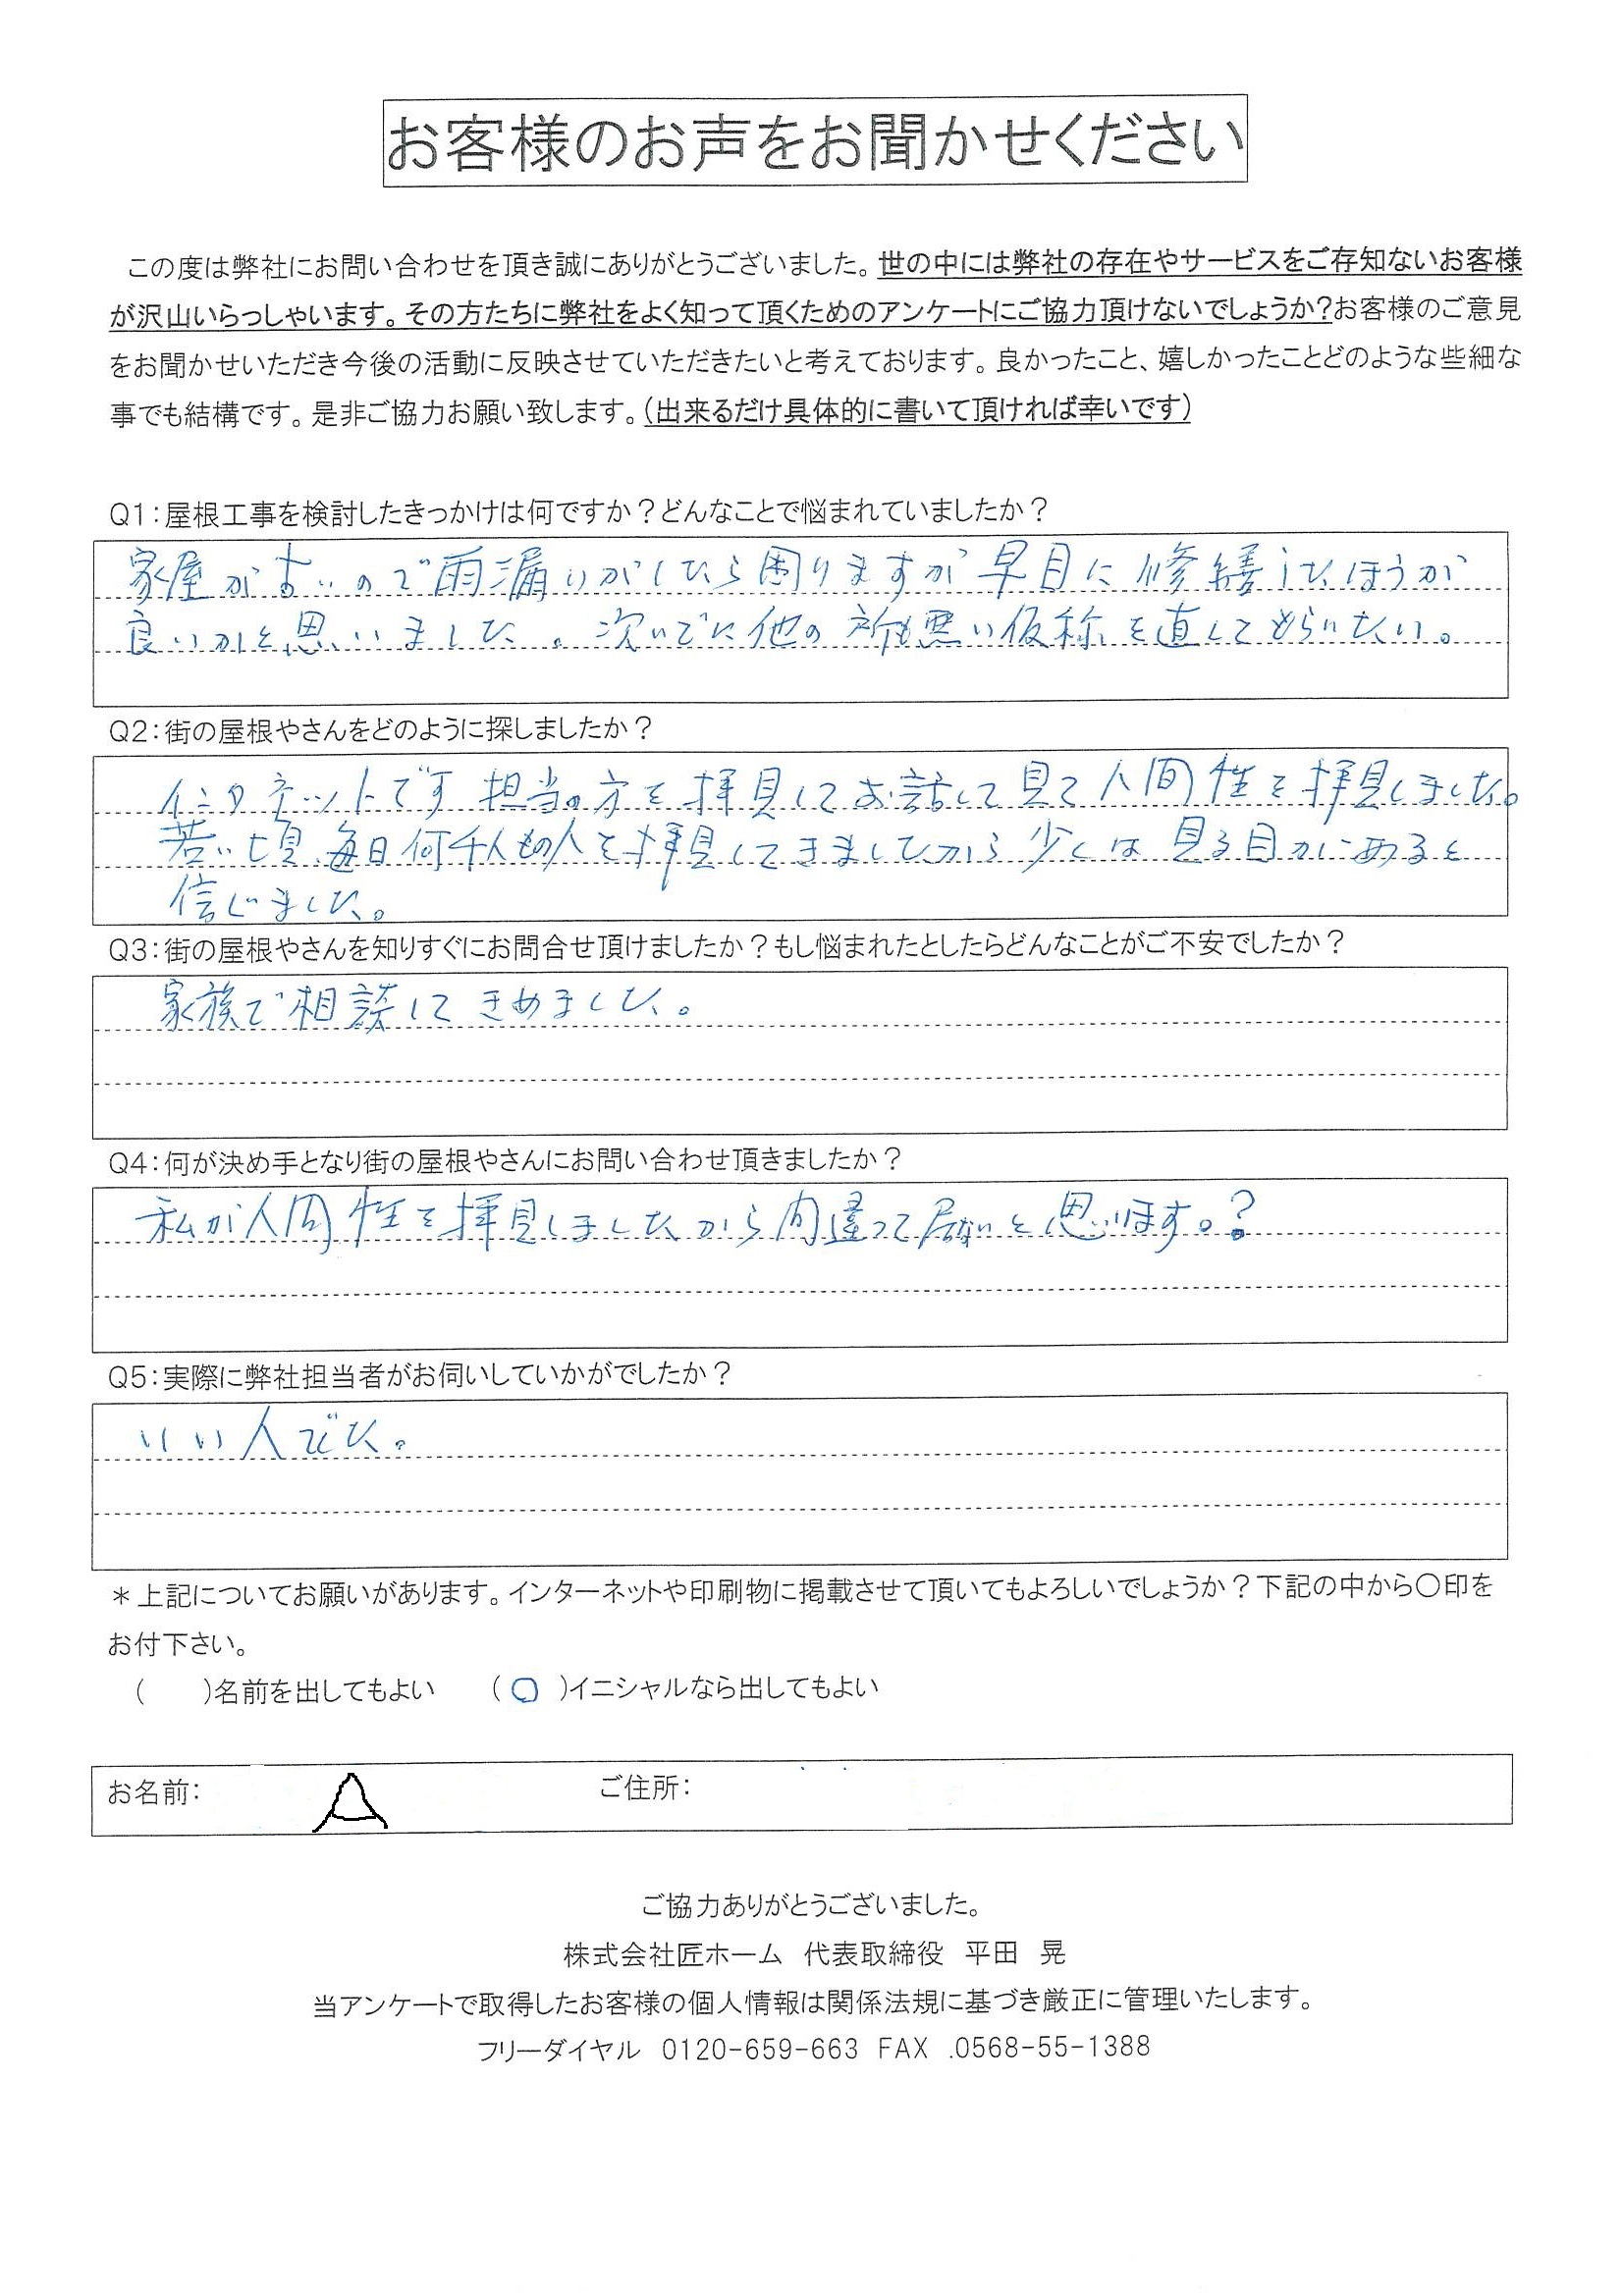 お客様のお声をお聞かせください
この度は弊社にお問い合わせを頂き誠にありがとうございました。世の中には弊社の存在やサービスをご存知ないお客様
が沢山いらっしゃいます。その方たちに弊社をよく知って頂くためのアンケートにご協力頂けないでしょうか?お客様のご意見
をお聞かせいただき今後の活動に反映させていただきたいと考えております。良かったこと、嬉しかったことどのような些細な
事でも結構です。是非ご協力お願い致します。(出来るだけ具体的に書いて頂ければ幸いです)
Q1:屋根工事を検討したきっかけは何ですか?どんなことで悩まれていましたか?
家屋が古いので雨漏りがしたら困りますが早目に修繕したほうが
良いかと思いました。次いでに他の所も悪い仮称を直してもらいたい。
Q2:街の屋根やさんをどのように探しましたか?
インタネットです担当の方を拝見してお話して見て人間性を拝見しました。
若い頃、毎日何千人もの人を拝見してきましたから少しは見る目があると
信じました。
Q3:街の屋根やさんを知りすぐにお問合せ頂けましたか?もし悩まれたとしたらどんなことがご不安でしたか?
家族で相談してきめました。
Q4:何が決め手となり街の屋根やさんにお問い合わせ頂きましたか?
私が人間性を拝見しましたから間違って居ないと思います。?
Q5:実際に弊社担当者がお伺いしていかがでしたか?
いい人でした。
*上記についてお願いがあります。インターネットや印刷物に掲載させて頂いてもよろしいでしょうか?下記の中から○印を
お付下さい。
(　　)名前を出してもよい　(○)イニシャルなら出してもよい
お名前: A ご住所:
ご協力ありがとうございました。
株式会社匠ホーム 代表取締役 平田 晃
当アンケートで取得したお客様の個人情報は関係法規に基づき厳正に管理いたします。
フリーダイヤル 0120-659-663 FAX .0568-55-1388